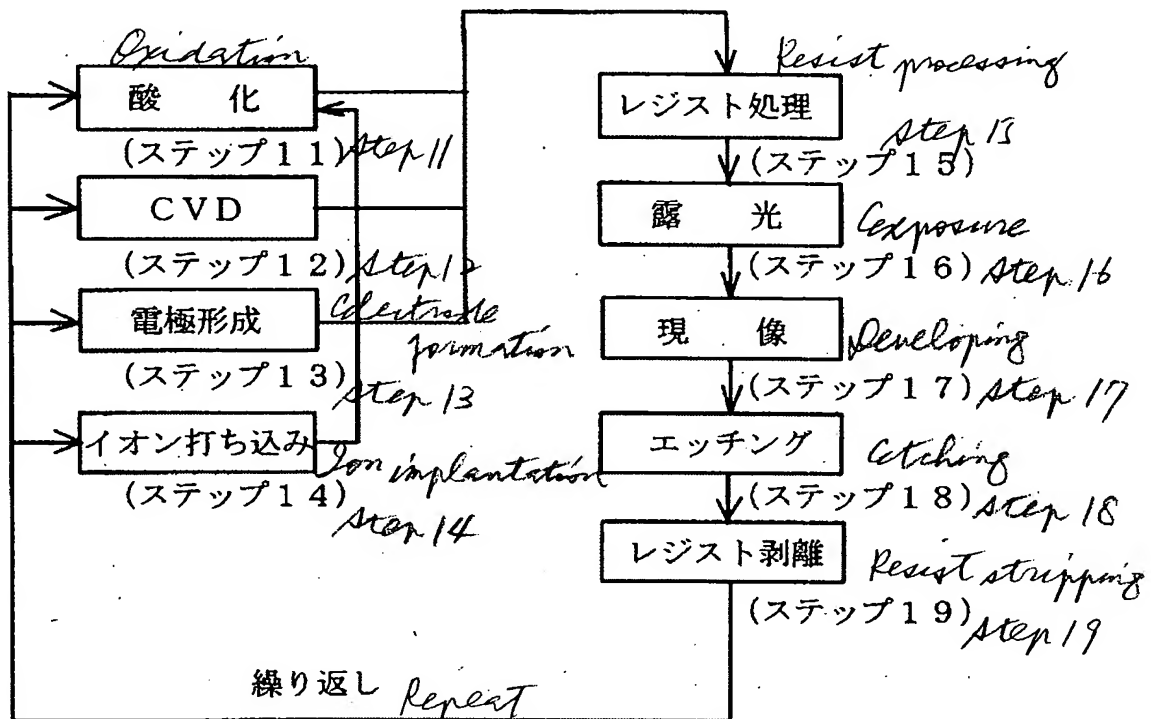 Oxidation
酸化
(ステップ11) Step 11
CVD
(ステップ12) Step 12
電極形成 Electrode
formation
(ステップ13)
Step 13
イオン打ち込み Ion implantation
(ステップ14)
Step 14
Resist processing
レジスト処理
Step 15
(ステップ15)
露光 Exposure
(ステップ16) Step 16
現像 Developing
(ステップ17) Step 17
エッチング Etching
(ステップ18) Step 18
レジスト剥離 Resist stripping
(ステップ19) Step 19
繰り返し Repeat